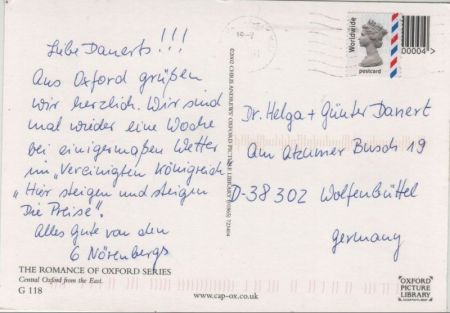 Liebe Danerts!!!
Aus Oxford grüßen
wir herzlich. Wir sind
mal wieder eine Woche
bei einigermaßen Wetter
im „Vereinigten Königreich
„Hier steigen und steigen
Die Preise".
Alles gute von den
6 Nörenbergs
THE ROMANCE OF OXFORD SERIES
Central Oxford from the East.
G 118
©2002 CHRIS ANDREWS OXFORD PICTURE LIBRARY (01865) 723404
www.cap-ox.co.uk
Worldwide
postcard
00004>
Dr. Helga + Günter Danert
Am Atzumer Busch 19
D-38302 Wolfenbüttel
Germany
OXFORD
PICTURE
LIBRARY